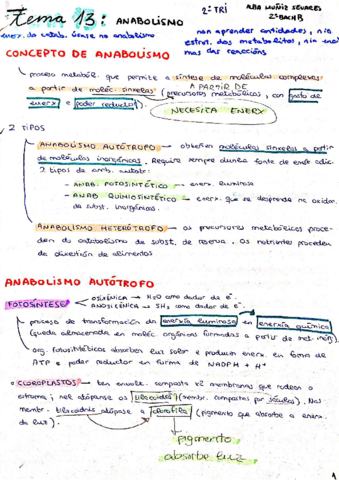 tema 13: ANABOLISMO
2º TRI
ALBA MUÑIZ SEUARES
2º BACH B
enerx. do catab. úsase no anabolismo
non aprender cantidades, nin
estrut. dos metabolitos, nin unhas
mas das reaccións
CONCEPTO DE ANABOLISMO
proceso metaból. que permite a síntese de moléculas complexas
A PARTIR DE
a partir de moléc. sinxelas (precursores metabólicos, con gasto de
enerx e poder redutor).
NECESITA ENERX
2 TIPOS
ANABOLISMO AUTÓTROFO → obteñen moléculas sinxelas a partir
de moléculas inorgánicas. Require sempre dunha fonte de enerx adic.
2 tipos de anab. autótr:
- ANAB. FOTOSINTÉTICO → enerx. luminosa
- ANAB QUIMIOSINTÉTICO → enerx. que se desprende na oxidac.
da subst. inorgánicas.
ANABOLISMO HETERÓTROFO → os precursores metabólicos proce-
den do catabolismo de subst. de reserva. Os nutrientes proceden
da dixestión de alimentos
ANABOLISMO AUTÓTROFO
FOTOSÍNTESE
OSIXÉNICA → H2O como dador de e-
ANOSIXÉNICA → SH2 como dador de e-.
proceso de transformación da enerxía luminosa en enerxía química
(queda almacenada en moléc orgánicas formadas a partir de mat. inorg).
org. fotosintéticos absorben luz solar e producen enerx. en forma de
ATP e poder redutor en forma de NADPH + H+
CLOROPLASTOS → ten envolt. composta x2 membranas que rodean o
estroma; nel atópanse os tilacoides (membr. compostas por sáculos). Nas
membr. tilacoidais atópase a clorofila (pigmento que absorbe a enerx.
da luz).
pigmento
absorbe luz
1